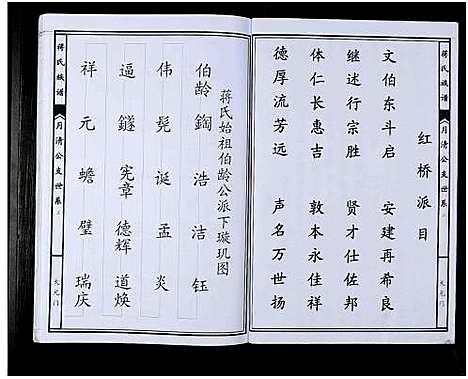 红桥派目
文伯东斗启 安建再希良
继述行宗胜 贤才仕佐邦
体仁长惠吉 敦本永佳祥
德厚流芳远 声名万世扬
蒋氏族谱
月清公支世系
大元门
蒋氏始祖伯龄公派下璇玑图
伯龄 鋾 浩 洁 钰
伟 髡 诞 孟 炎
逼 鐩 宪章 德辉 道焕
祥 元 蟾 璧 瑞庆
蒋氏族谱
月清公支世系
大元门